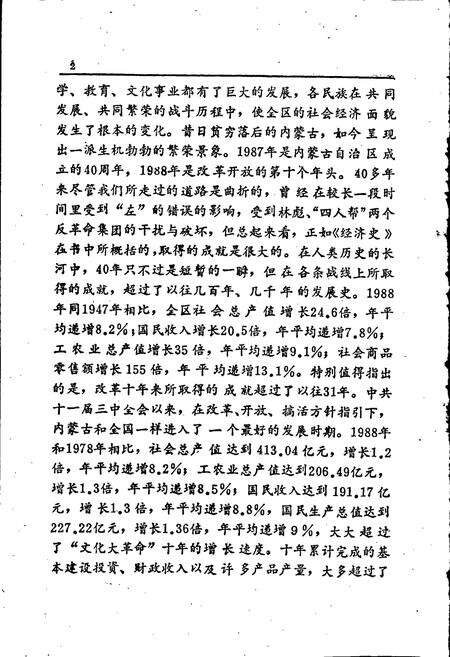 2
学、教育、文化事业都有了巨大的发展，各民族在共同
发展、共同繁荣的战斗历程中，使全区的社会经济面貌
发生了根本的变化。昔日贫穷落后的内蒙古，如今呈现
出一派生机勃勃的繁荣景象。1987年是内蒙古自治区成
立的40周年，1988年是改革开放的第十个年头。40多年
来尽管我们所走过的道路是曲折的，曾经在较长一段时
间里受到“左”的错误的影响，受到林彪、“四人帮”两个
反革命集团的干扰与破坏，但总起来看，正如《经济史》
在书中所概括的，取得的成就是很大的。在人类历史的长
河中，40年只不过是短暂的一瞬，但在各条战线上所取
得的成就，超过了以往几百年、几千年的发展史。1988
年同1947年相比，全区社会总产值增长24.6倍，年平
均递增8.2%；国民收入增长20.5倍，年平均递增7.8%；
工农业总产值增长35倍，年平均递增9.1%；社会商品
零售额增长155倍，年平均递增13.1%。特别值得指出
的是，改革十年来所取得的成就超过了以往31年。中共
十一届三中全会以来，在改革、开放、搞活方针指引下，
内蒙古和全国一样进入了一个最好的发展时期。1988年
和1978年相比，社会总产值达到413.04亿元，增长1.2
倍，年平均递增8.2%；工农业总产值达到206.49亿元，
增长1.3倍，年平均递增8.5%；国民收入达到191.17亿
元，增长1.3倍，年平均递增8.8%，国民生产总值达到
227.22亿元，增长1.36倍，年平均递增9%，大大超过
了“文化大革命”十年的增长速度。十年累计完成的基
本建设投资、财政收入以及许多产品产量，大多超过了